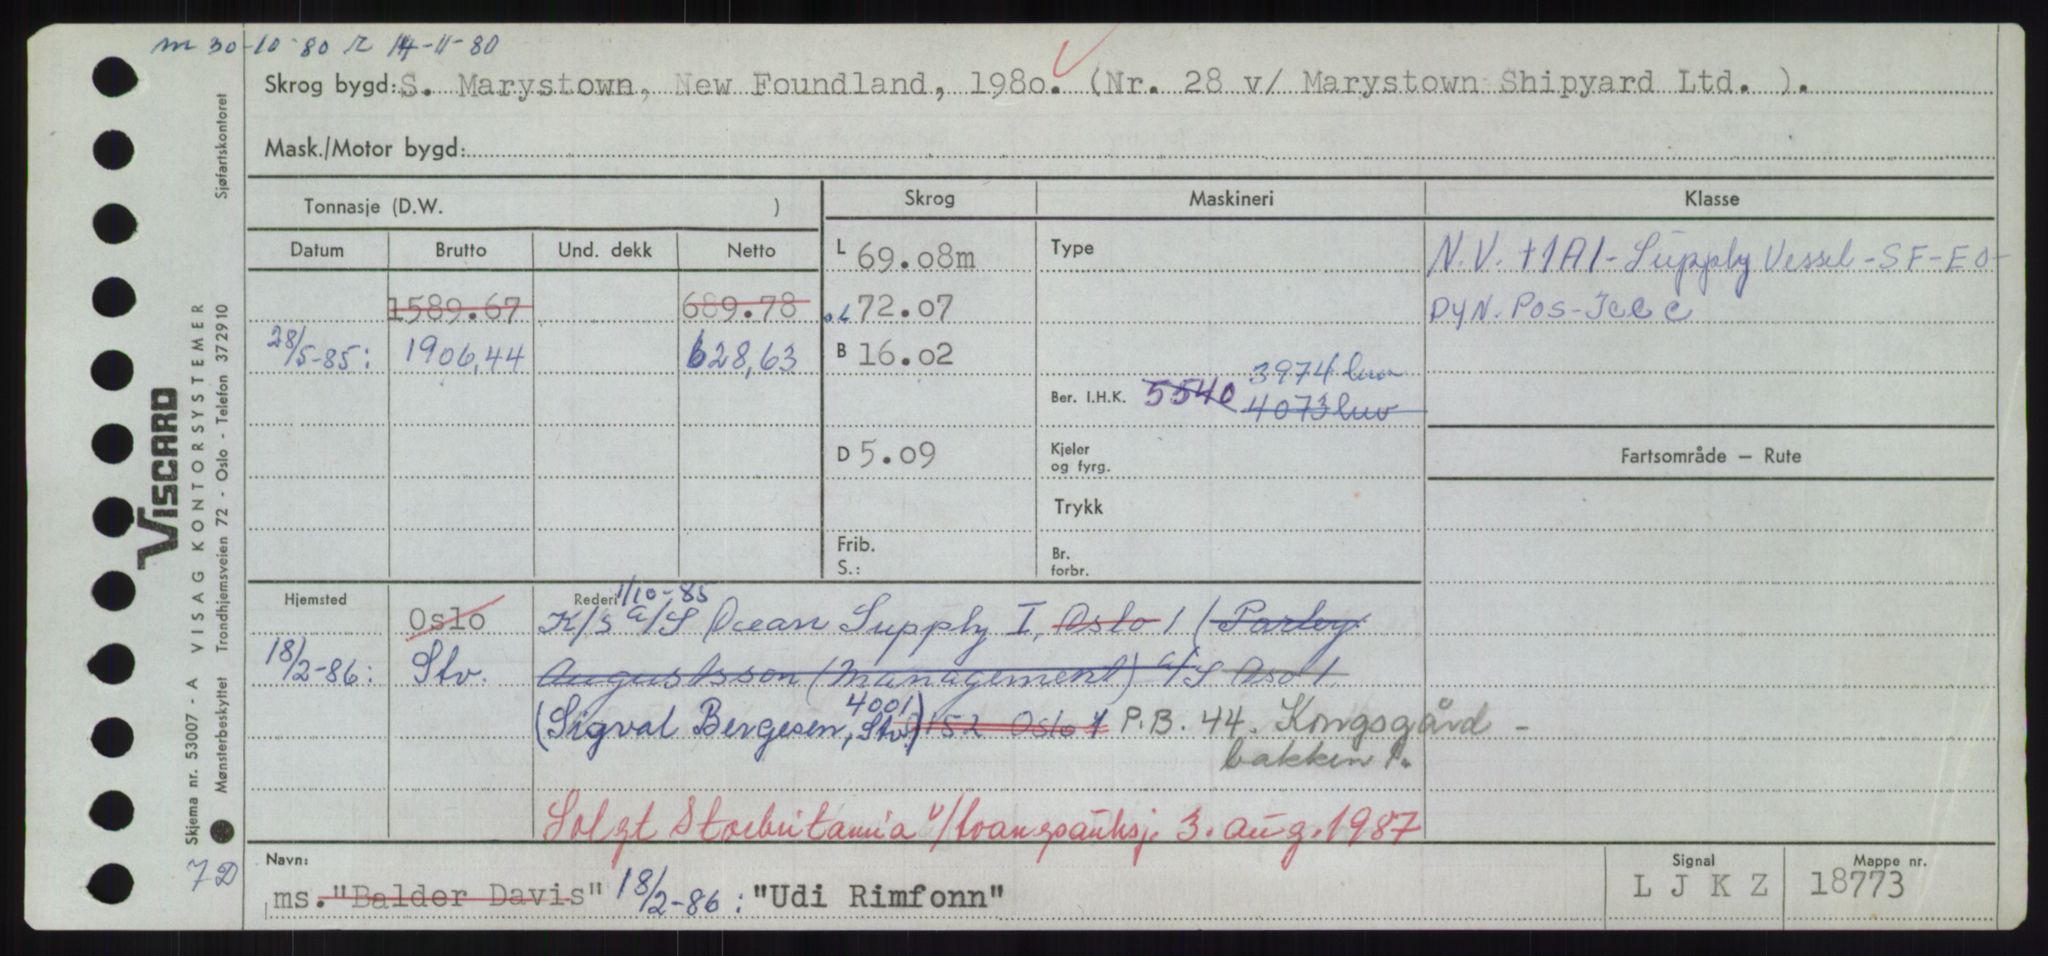 m 30-10-80 r 14-11-80
Skrog bygd: S. Marystown, New Foundland, 1980. (Nr. 28 v/ Marystown Shipyard Ltd. ).
Mask./Motor bygd:
Tonnasje (D.W. )
Skrog
Maskineri
Klasse
Datum
Brutto
Und. dekk
Netto
L 69.08m
Type
N.V. +1A1-Supply Vessel-SF-EO-
1589.67
689.78
o.L 72.07
DYN. POS-Ice C
28/5-85:
1906,44
628,63
B 16.02
3974
Ber. I.H.K. 5540
4073
D 5.09
Kjeler
og fyrg.
Fartsområde – Rute
Trykk
Frib.
S.:
Br.
forbr.
Hjemsted
Oslo
Rederi 1/10-85
K/S A/S Ocean Supply I, Oslo 1 (Parley
18/2-86:
Stv.
Augustsson (Management) A/S Oslo 1
(Sigval Bergesen, 4001 Stv.) 152 Oslo 1 P.B. 44. Kongsgård-
bakken 1.
Solgt Storbritania v/tvangsauksj. 3. aug. 1987
Navn:
ms. "Balder Davis" 18/2-86: "Udi Rimfonn"
Signal
L J K Z
Mappe nr.
18773
7D
VISCARD
Skjema nr. 53007 - A VISAG KONTORSYSTEMER
Mønsterbeskyttet Trondhjemsveien 72 - Oslo - Telefon 372910 Sjøfartskontoret